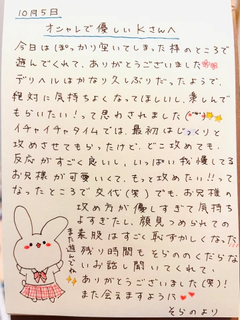 10月5日
オシャレで優しいKさんへ
今日はぽっかり空いてしまった枠のところで
遊んでくれて、ありがとうございました
デリヘルはかなり久しぶりだったようで、
絶対に気持ちよくなってほしいし、楽しんで
もらいたい!って思わされました
イチャイチャタイムでは、最初はじっくりと
攻めさせてもらったけど、どこ攻めても
反応がすごく良いし、いっぱい我慢してる
お兄様が可愛いくて、もっと攻めたい!!って
なったところで交代(笑)でも、お兄様の
攻め方が優しすぎて気持ち
よすぎたし、顔見つめられての
素股はすごく恥ずかしくなった
残り時間もそらののくだらな
いお話し聞いてくれて、
ありがとうございました(笑)!
また会えますように
そらのより
また遊んでね